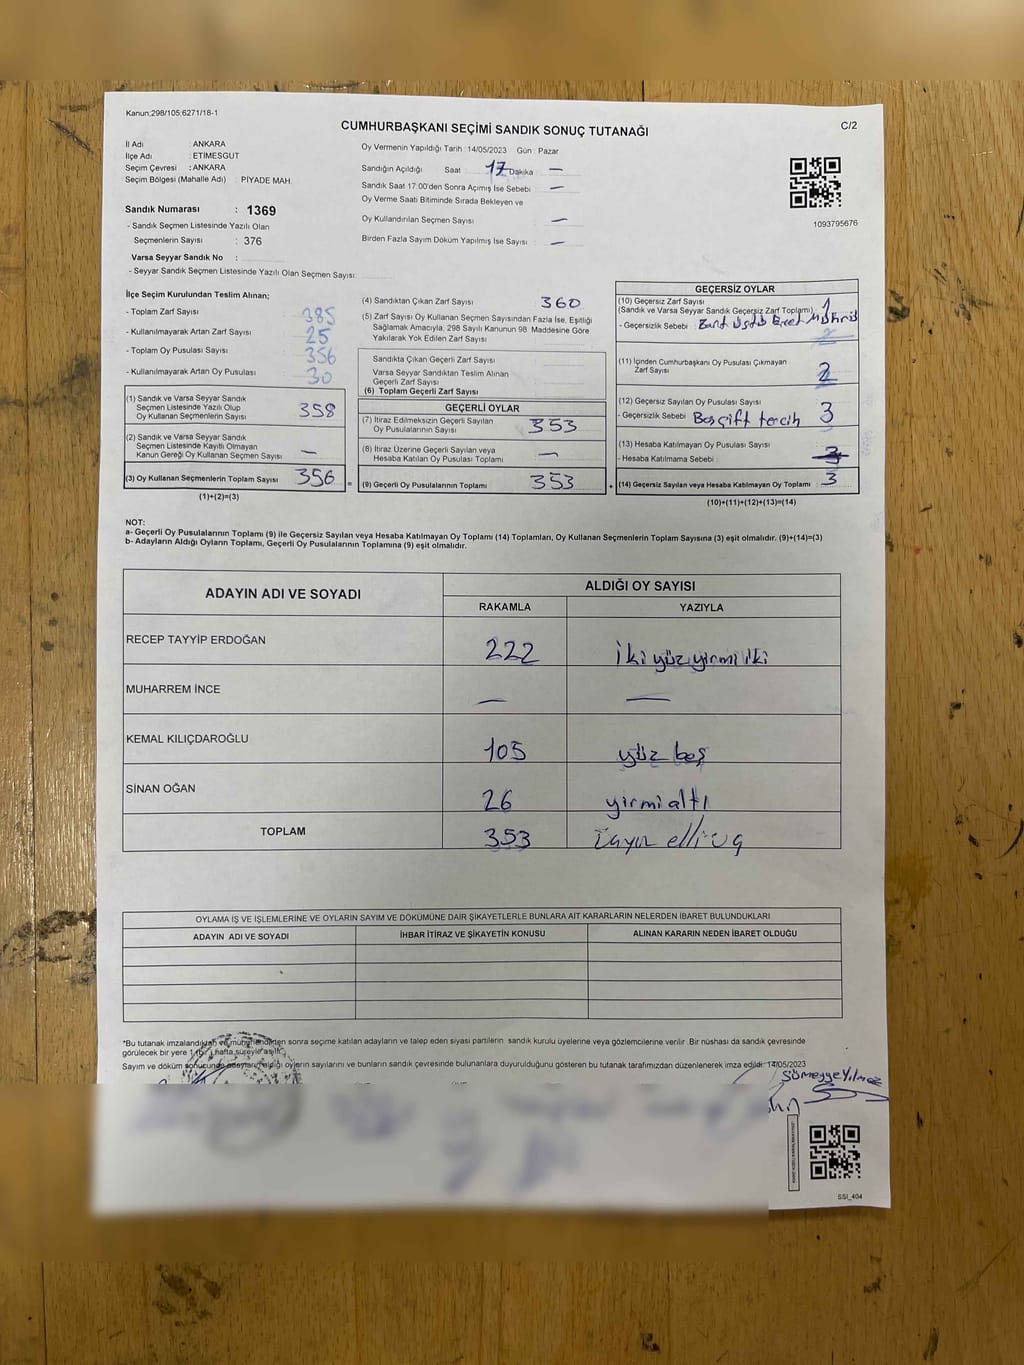 Kanun;298/105;6271/18-1
CUMHURBAŞKANI SEÇİMİ SANDIK SONUÇ TUTANAĞI
C/2
İl Adı : ANKARA
İlçe Adı : ETİMESGUT
Seçim Çevresi : ANKARA
Seçim Bölgesi (Mahalle Adı) : PİYADE MAH.
Sandık Numarası : 1369
- Sandık Seçmen Listesinde Yazılı Olan
Seçmenlerin Sayısı : 376
Varsa Seyyar Sandık No :
- Seyyar Sandık Seçmen Listesinde Yazılı Olan Seçmen Sayısı:
Oy Vermenin Yapıldığı Tarih :14/05/2023 Gün : Pazar
Sandığın Açıldığı Saat 17 Dakika —
Sandık Saat 17:00'den Sonra Açımış İse Sebebi —
Oy Verme Saati Bitiminde Sırada Bekleyen ve
Oy Kullandırılan Seçmen Sayısı —
Birden Fazla Sayım Döküm Yapılmış İse Sayısı —
1093795676
İlçe Seçim Kurulundan Teslim Alınan;
- Toplam Zarf Sayısı 385
- Kullanılmayarak Artan Zarf Sayısı 25
- Toplam Oy Pusulası Sayısı 356
- Kullanılmayarak Artan Oy Pusulası 30
(1) Sandık ve Varsa Seyyar Sandık
Seçmen Listesinde Yazılı Olup
Oy Kullanan Seçmenlerin Sayısı 358
(2) Sandık ve Varsa Seyyar Sandık
Seçmen Listesinde Kayıtlı Olmayan
Kanun Gereği Oy Kullanan Seçmen Sayısı —
(3) Oy Kullanan Seçmenlerin Toplam Sayısı 356 =
(1)+(2)=(3)
(4) Sandıktan Çıkan Zarf Sayısı 360
(5) Zarf Sayısı Oy Kullanan Seçmen Sayısından Fazla İse, Eşitliği
Sağlamak Amacıyla, 298 Sayılı Kanunun 98. Maddesine Göre
Yakılarak Yok Edilen Zarf Sayısı
Sandıkta Çıkan Geçerli Zarf Sayısı
Varsa Seyyar Sandıktan Teslim Alınan
Geçerli Zarf Sayısı
(6) Toplam Geçerli Zarf Sayısı
GEÇERLİ OYLAR
(7) İtiraz Edilmeksizin Geçerli Sayılan
Oy Pusulalarının Sayısı 353
(8) İtiraz Üzerine Geçerli Sayılan veya
Hesaba Katılan Oy Pusulası Toplamı —
(9) Geçerli Oy Pusulalarının Toplamı 353 +
GEÇERSİZ OYLAR
(10) Geçersiz Zarf Sayısı 1
(Sandık ve Varsa Seyyar Sandık Geçersiz Zarf Toplamı)
- Geçersizlik Sebebi
(11) İçinden Cumhurbaşkanı Oy Pusulası Çıkmayan
Zarf Sayısı 2
(12) Geçersiz Sayılan Oy Pusulası Sayısı 3
- Geçersizlik Sebebi Boş çift tercih
(13) Hesaba Katılmayan Oy Pusulası Sayısı
- Hesaba Katılmama Sebebi
(14) Geçersiz Sayılan veya Hesaba Katılmayan Oy Toplamı 3
(10)+(11)+(12)+(13)=(14)
NOT:
a- Geçerli Oy Pusulalarının Toplamı (9) ile Geçersiz Sayılan veya Hesaba Katılmayan Oy Toplamı (14) Toplamları, Oy Kullanan Seçmenlerin Toplam Sayısına (3) eşit olmalıdır. (9)+(14)=(3)
b- Adayların Aldığı Oyların Toplamı, Geçerli Oy Pusulalarının Toplamına (9) eşit olmalıdır.
ADAYIN ADI VE SOYADI ALDIĞI OY SAYISI
RAKAMLA YAZIYLA
RECEP TAYYİP ERDOĞAN 222 İki yüz yirmi iki
MUHARREM İNCE — —
KEMAL KILIÇDAROĞLU 105 yüz beş
SİNAN OĞAN 26 yirmi altı
TOPLAM 353
OYLAMA İŞ VE İŞLEMLERİNE VE OYLARIN SAYIM VE DÖKÜMÜNE DAİR ŞİKAYETLERLE BUNLARA AİT KARARLARIN NELERDEN İBARET BULUNDUKLARI
ADAYIN ADI VE SOYADI İHBAR İTİRAZ VE ŞİKAYETİN KONUSU ALINAN KARARIN NEDEN İBARET OLDUĞU
*Bu tutanak imzalandıktan ve mühürlendikten sonra seçime katılan adayların ve talep eden siyasi partilerin sandık kurulu üyelerine veya gözlemcilerine verilir .Bir nüshası da sandık çevresinde
görülecek bir yere 1 (bir) hafta süreyle asılır.
Sayım ve döküm sonucunda adayların aldığı oyların sayılarını ve bunların sandık çevresinde bulunanlara duyurulduğunu gösteren bu tutanak tarafımızdan düzenlenerek imza edildi. 14/05/2023
Sümeyye Yılmaz
SSI_404